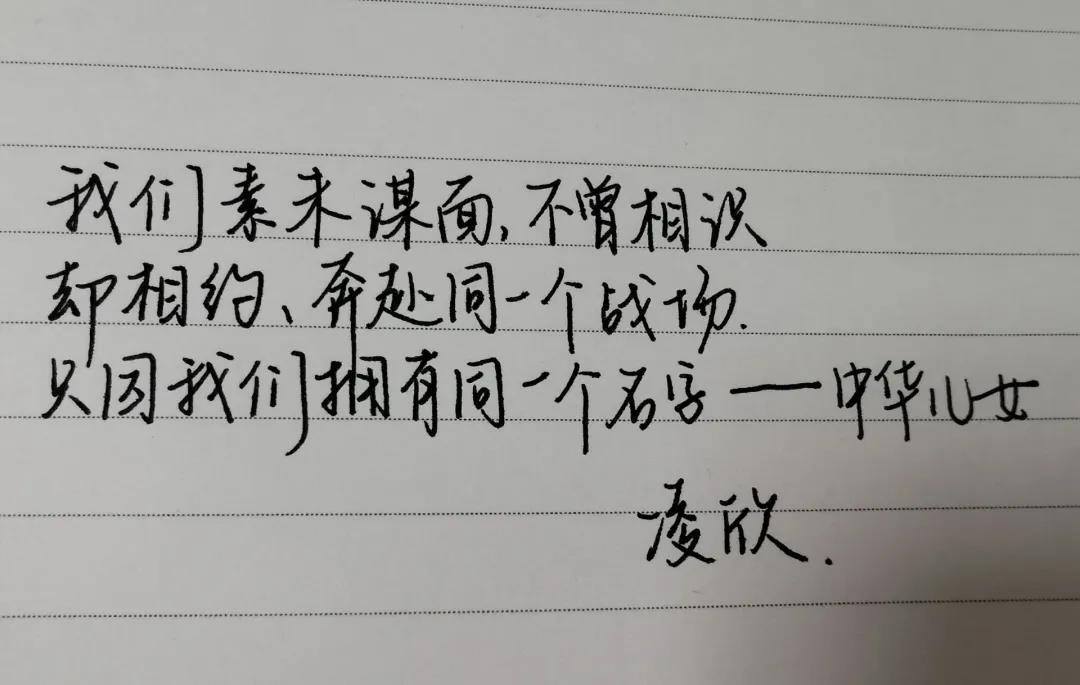 我们素未谋面,不曾相识
却相约、奔赴同一个战场.
只因我们拥有同一个名字——中华儿女
凌欣.